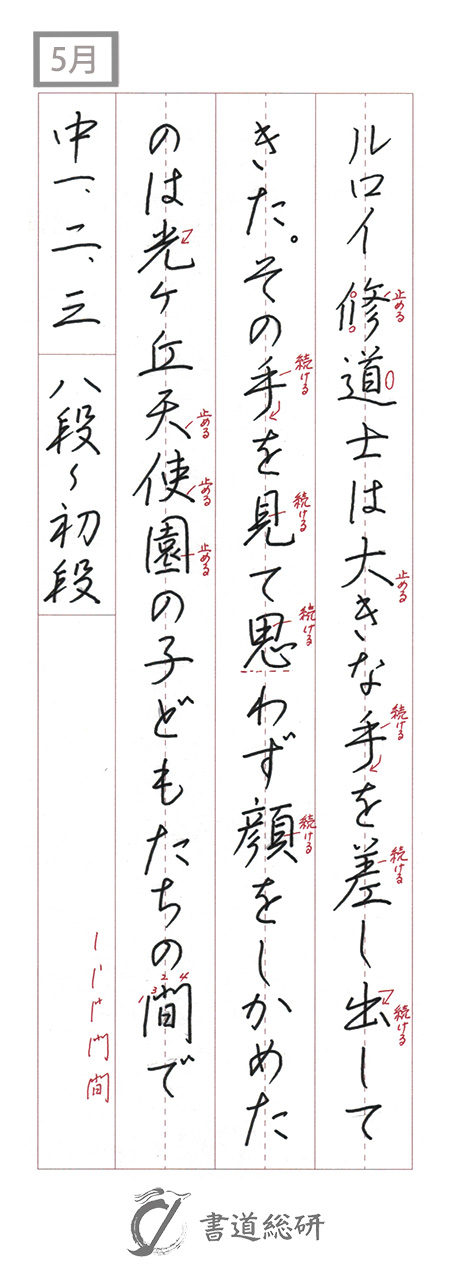 5月
ルロイ修道士は大きな手を差し出して
止める
止める
続ける
続ける
続ける
きた。その手を見て思わず顔をしかめた
続ける
続ける
続ける
続ける
のは光ケ丘天使園の子どもたちの間で
止める
止める
止める
1 3 2 4
中一、二、三
八段〜初段
門間
書道総研